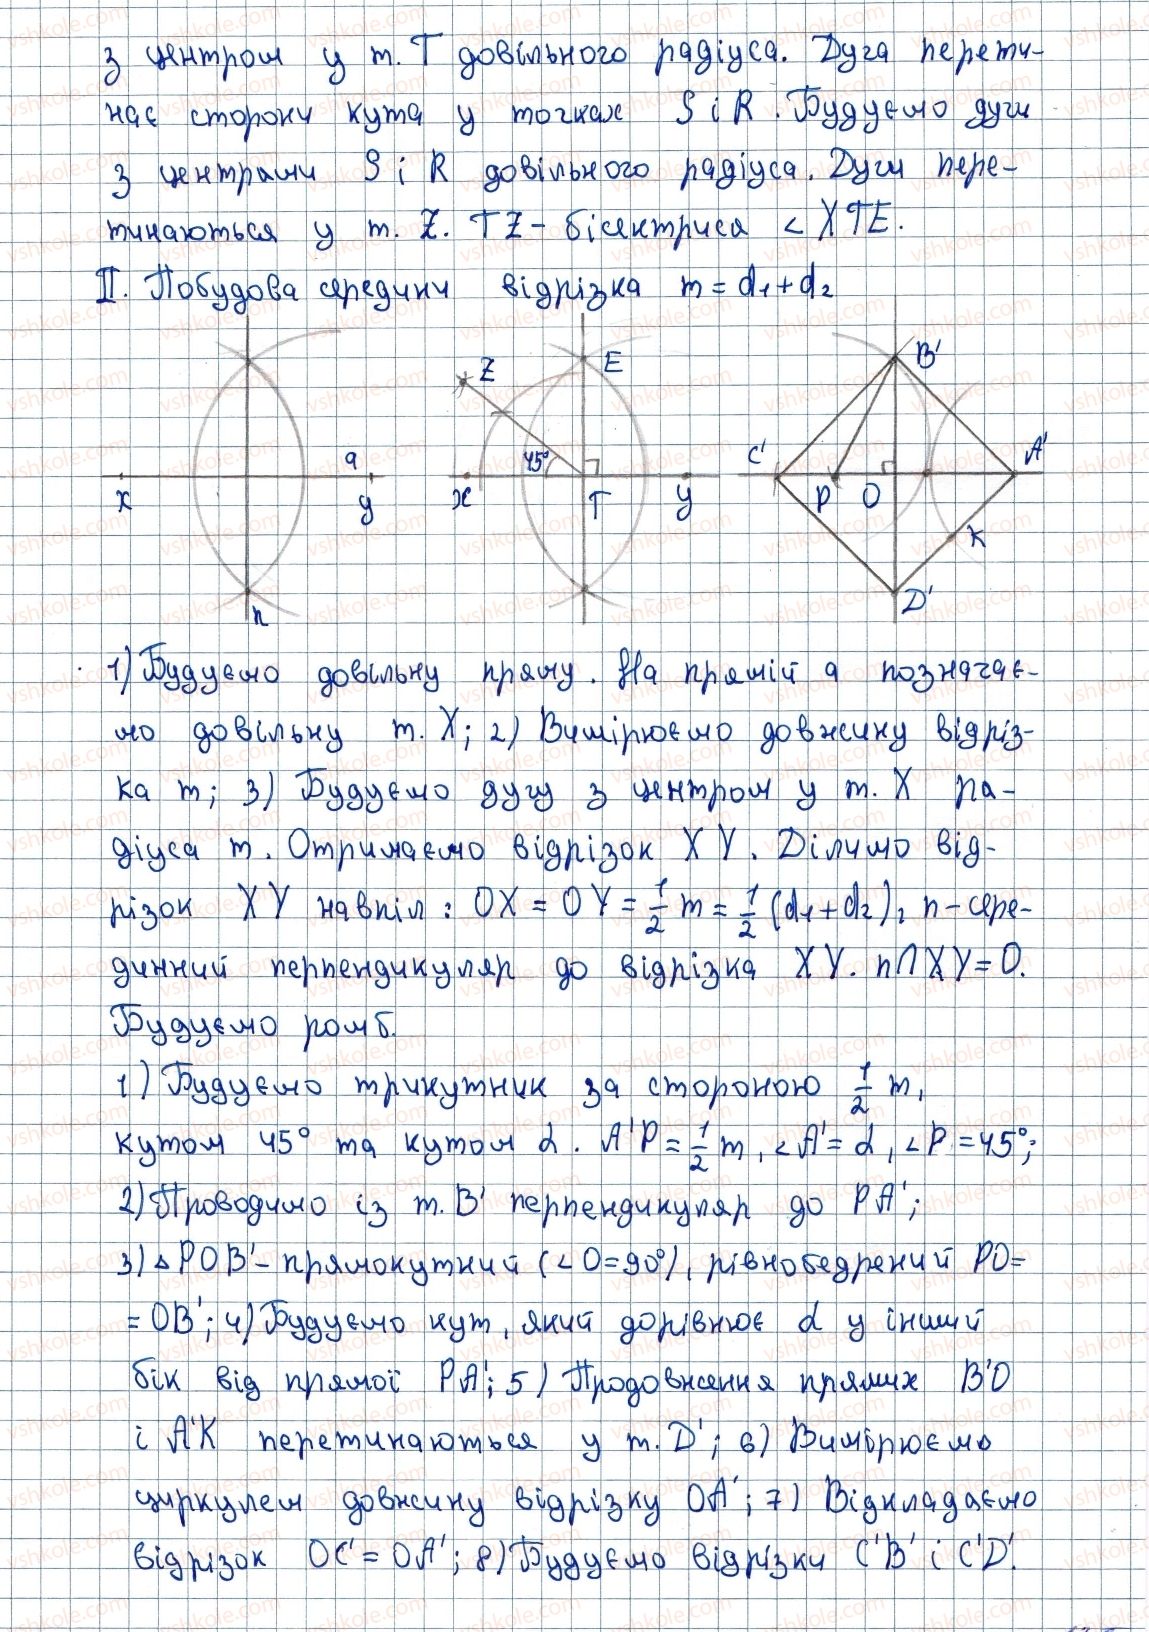 з центром у т. T довільного радіуса. Дуга перети-
нає сторони кута у точках S і R. Будуємо дуги
з центрами S і R довільного радіуса. Дуги пере-
тинаються у т. Z. TZ - бісектриса < XTE.
II. Побудова середини відрізка m = d₁ + d₂
Z E B'
a 45° C' A'
x y x T y P O K
n D'
1) Будуємо довільну пряму. На прямій a позначає-
мо довільну т. X; 2) Вимірюємо довжину відріз-
ка m; 3) Будуємо дугу з центром у т. X ра-
діуса m. Отримаємо відрізок XY. Ділимо від-
різок XY навпіл: OX = OY = 1/2 m = 1/2 (d₁ + d₂), n - сере-
динний перпендикуляр до відрізка XY. n∩XY = O.
Будуємо ромб.
1) Будуємо трикутник за стороною 1/2 m,
кутом 45° та кутом α. A'P = 1/2 m, <A' = α, <P = 45°;
2) Проводимо із т. B' перпендикуляр до PA';
3) △POB' - прямокутний (<O = 90°), рівнобедрений PO=
= OB'; 4) Будуємо кут, який дорівнює α у інший
бік від прямої PA'; 5) Продовження прямих B'O
і A'K перетинаються у т. D'; 6) Вимірюємо
циркулем довжину відрізку OA'; 7) Відкладаємо
відрізок OC' = OA'; 8) Будуємо відрізки C'B' і C'D'.
vshkole.com